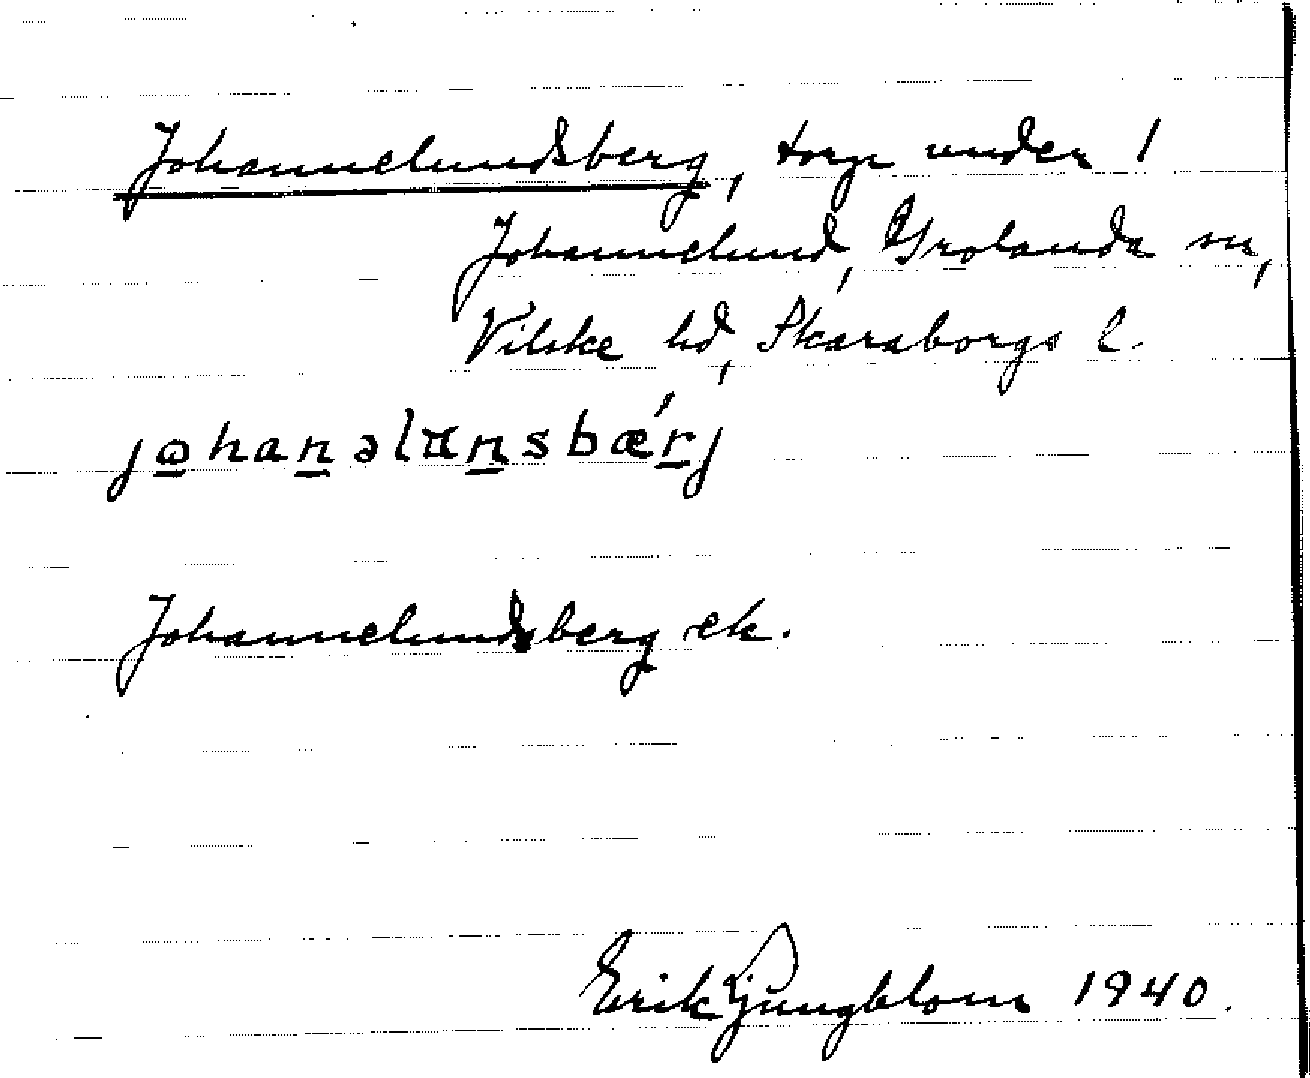 Johannelundsberg, torp under 1
Johannelund, Grolanda sn,
Vilske hd, Skaraborgs l.
johanəlunsbærj
Johannelundsberg ek.
Erik Ljungblom 1940.